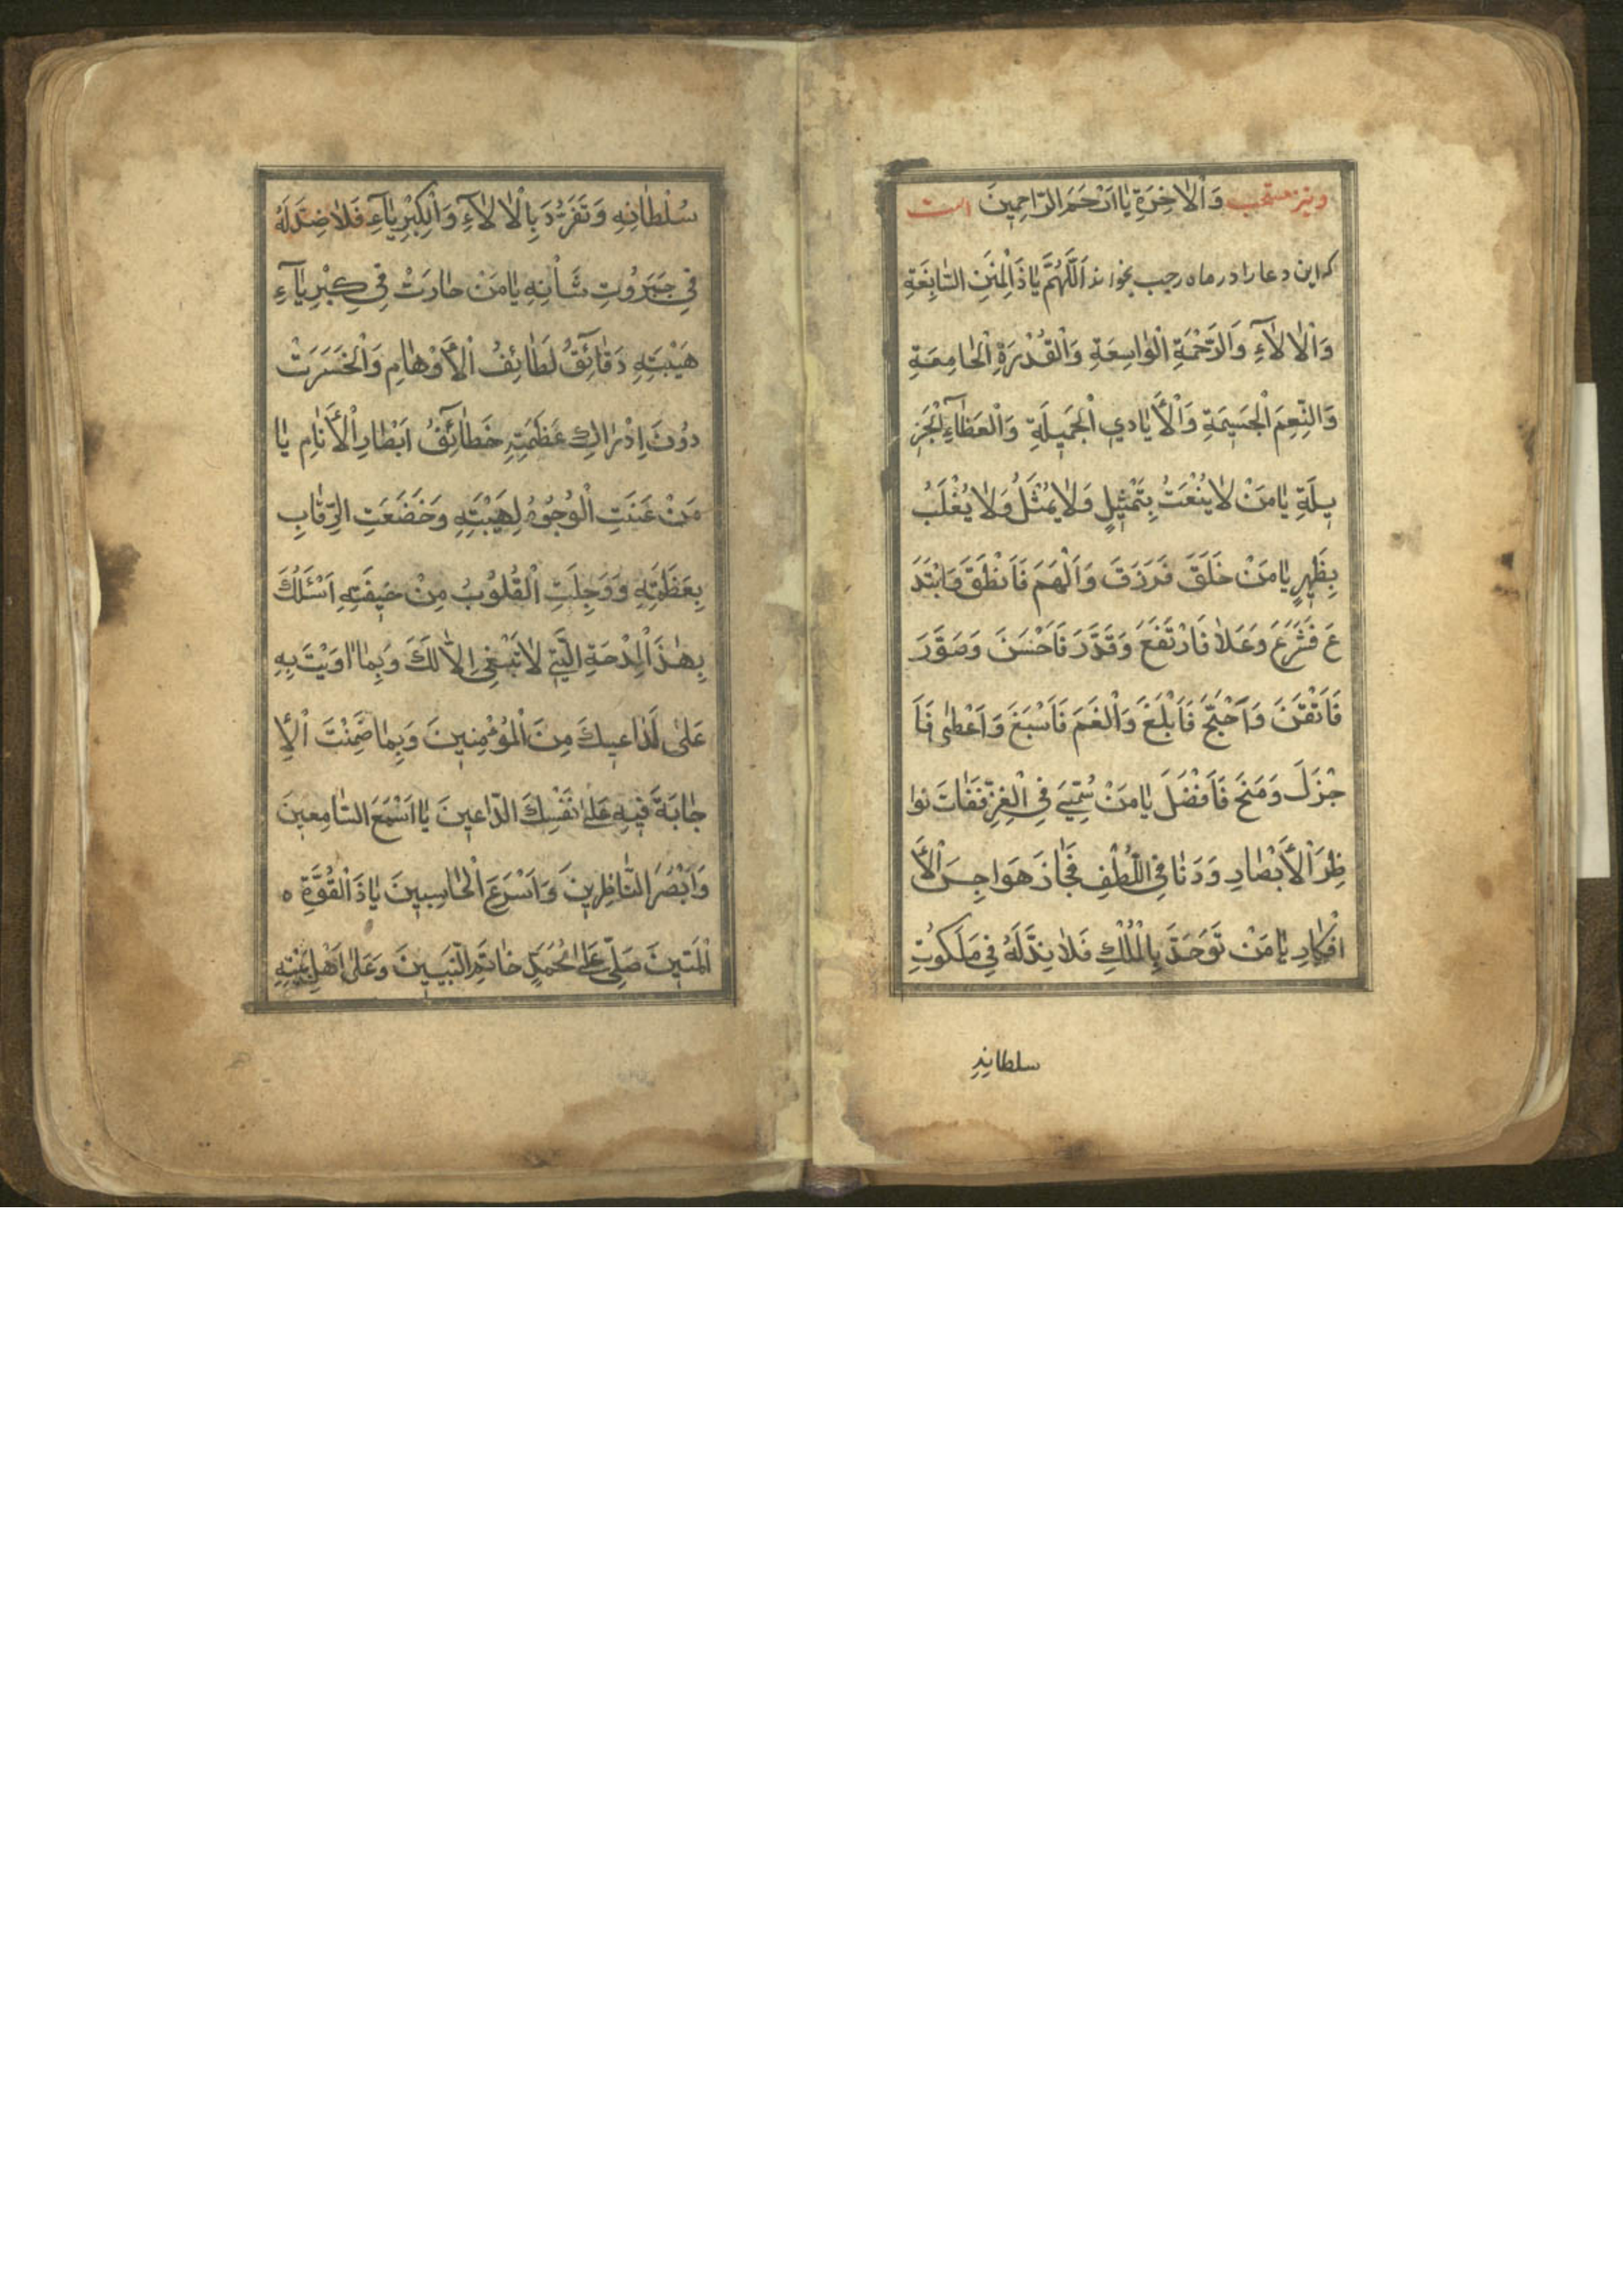 ونیز مستحب وَالْاٰخِرَةِ يٰا اَرْحَمَ الرّٰاحِمِينَ است
که این دعا را در ماه رجب بخواند اَللّٰهُمَّ يٰا ذَالْمِنَنِ السّٰابِغَةِ
وَالْاٰلاٰۤءِ وَالرَّحْمَةِ الْوٰاسِعَةِ وَالْقُدْرَةِ الْجٰامِعَةِ
وَالنِّعَمِ الْجَسِيمَةِ وَالْأَيٰادِي الْجَمِيلَةِ وَالْعَطٰاۤءِ الْجَزِ
يلَةِ يٰا مَنْ لاٰ يُنْعَتُ بِتَمْثِيلٍ وَلاٰ يُمْثَلُ وَلاٰ يُغْلَبُ
بِظَهِيرٍ يٰا مَنْ خَلَقَ فَرَزَقَ وَاَلْهَمَ فَاَنْطَقَ وَابْتَدَ
عَ فَشَرَعَ وَعَلاٰ فَارْتَفَعَ وَقَدَّرَ فَاَحْسَنَ وَصَوَّرَ
فَاَتْقَنَ وَاَحْتَجَّ فَاَبْلَغَ وَاَلْغَمَ فَاَسْبَغَ وَاَعْطٰى فَاَ
جْزَلَ وَمَنَحَ فَاَفْضَلَ يٰا مَنْ سُمِّيَ فِي الْعِزِّ فَفٰاتَ نوا
ظِرَ الْأَبْصٰارِ وَدَنٰا فِي اللُّطْفِ فَجٰازَ هَوَاجِسَ الْأَ
افْكٰارِ يٰا مَنْ تَوَحَّدَ بِالْمُلْكِ فَلاٰ نِدَّ لَهُ فِي مَلَكُوتِ
سلطانه
سُلْطٰانِهِ وَتَفَرَّدَ بِالْاٰلاٰۤءِ وَالْكِبْرِيٰاۤءِ فَلاٰ ضِدَّ لَهُ
فِي جَبَرُوتِ شَأْنِهِ يٰا مَنْ حٰارَتْ فِي كِبْرِيٰاۤءِ
هَيْبَتِهِ دَقٰاۤئِقُ لَطٰائِفُ الْأَوْهٰامِ وَانْحَسَرَتْ
دُونَ اِدْرٰاكِ عَظَمَتِهِ خَطٰاۤئِفُ اَبْصٰارِ الْأَنٰامِ يٰا
مَنْ عَنَتِ الْوُجُوهُ لِهَيْبَتِهِ وَخَضَعَتِ الرِّقٰابِ
بِعَظَمَتِهِ وَوَجِلَتِ الْقُلُوبُ مِنْ خِيفَتِهِ اَسْئَلُكَ
بِهٰذَ الْمِدْحَةِ الَّتِي لاٰ تَنْبَغِي اِلاّٰ لَكَ وَبِمٰا اٰوَيْتَ بِهِ
عَلىٰ لَدٰاعِيكَ مِنَ الْمُؤْمِنِينَ وَبِمٰا ضَمِنْتَ الْاِ
جٰابَةَ فِيهِ عَلىٰ نَفْسِكَ الدّٰاعِينَ يٰا اَسْمَعَ السّٰامِعِينَ
وَاَبْصَرَ النّٰاظِرِينَ وَاَسْرَعَ الْحٰاسِبِينَ يٰا ذَالْقُوَّةِ ه
الْمَتِينَ صَلِّ عَلىٰ مُحَمَّدٍ خٰاتَمِ النَّبِيِّينَ وَعَلىٰ اَهْلِ بَيْتِهِ